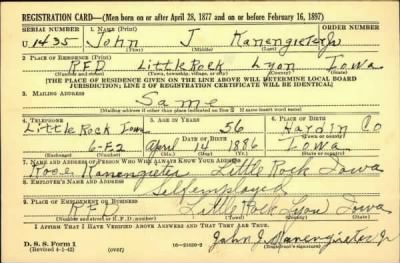 REGISTRATION CARD—(Men born on or after April 28, 1877 and on or before February 16, 1897)
SERIAL NUMBER 1. NAME (Print) ORDER NUMBER
U 1435 John J Kanengieter Jr
(First) (Middle) (Last)
2. PLACE OF RESIDENCE (Print)
RFD Little Rock Lyon Iowa
(Number and street) (Town, township, village, or city) (County) (State)
[THE PLACE OF RESIDENCE GIVEN ON THE LINE ABOVE WILL DETERMINE LOCAL BOARD
JURISDICTION; LINE 2 OF REGISTRATION CERTIFICATE WILL BE IDENTICAL]
3. MAILING ADDRESS
Same
(Mailing address if other than place indicated on line 2. If same insert word same)
4. TELEPHONE 5. AGE IN YEARS 6. PLACE OF BIRTH
Little Rock Iowa 56 Hardin Co
DATE OF BIRTH
6-F2 April 14 1886 Iowa
(Exchange) (Number) (Mo.) (Day) (Yr.) (State or country)
7. NAME AND ADDRESS OF PERSON WHO WILL ALWAYS KNOW YOUR ADDRESS
Rose Kanengieter Little Rock Iowa
8. EMPLOYER'S NAME AND ADDRESS
Self employed
9. PLACE OF EMPLOYMENT OR BUSINESS
RFD Little Rock Lyon Iowa
(Number and street or R. F. D. number) (Town) (County) (State)
I AFFIRM THAT I HAVE VERIFIED ABOVE ANSWERS AND THAT THEY ARE TRUE.
D. S. S. Form 1
(Revised 4-1-42) (over) John J. Kanengieter Jr
(Registrant's signature)